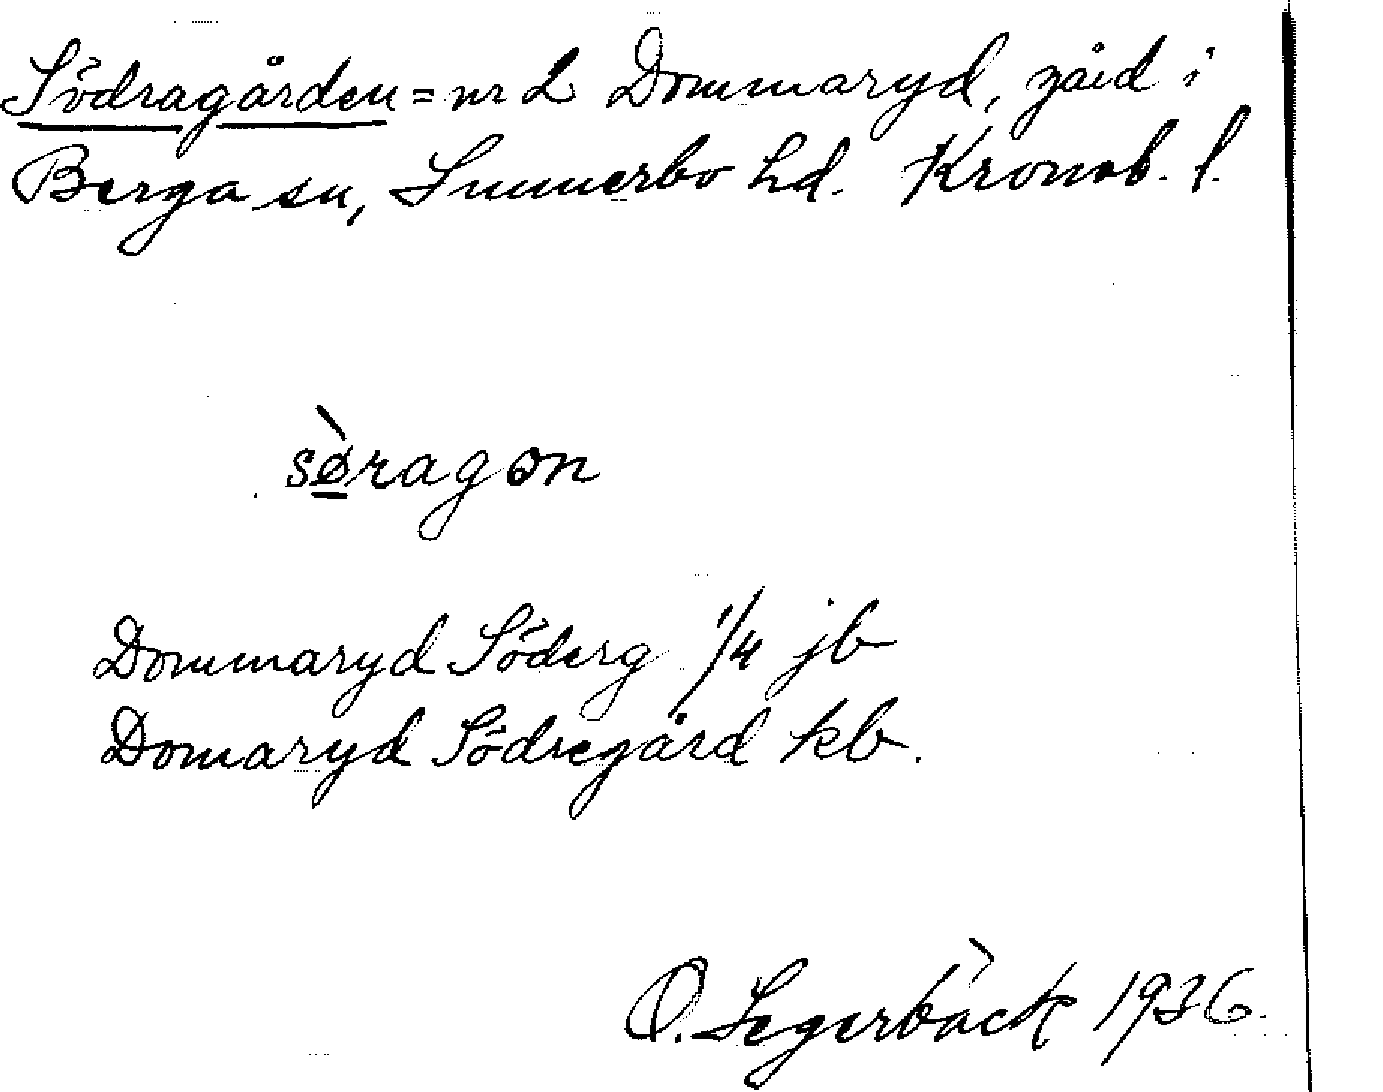 Södragården = nr 2 Dommaryd, gård i
Berga sn, Sunnerbo hd. Kronob. l.
sø̀ragən
Dommaryd Söderg 1/4 jb
Domaryd Södregård kb.
O. Segerbäck 1936.